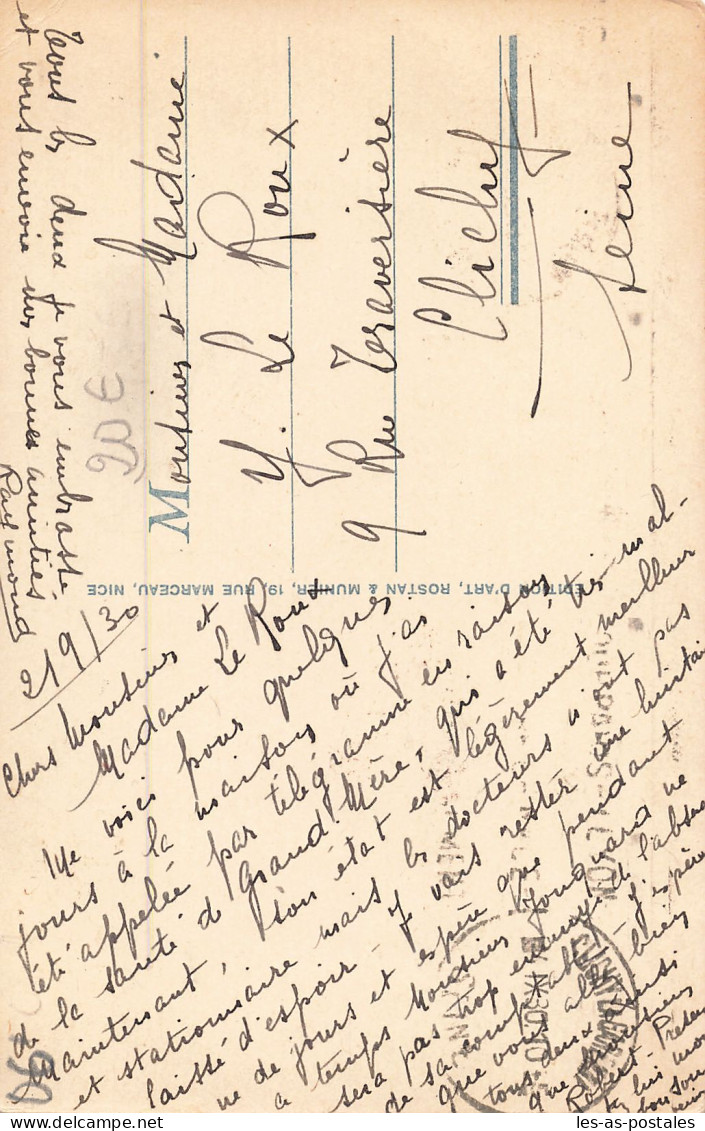 21 9/30
Chers Monsieur et
Madame Le Roux
Me voici pour quelques
jours à la maison où j'ai
été appelée par télégramme en raison
de la santé de Grand'Mère, qui a été très mal-
Maintenant, son état est légèrement meilleur
et stationnaire mais les docteurs n'ont pas
laissé d'espoir - Je vais rester une huitai
ne de jours et espère que pendant
ce temps Monsieur Jonquard ne
sera pas trop ennuyé de l'absence
de sa comptable. J'espère
que vous allez bien
tous deux ainsi
que Monsieur
Robert - Présen
tez lui mon
bon souvenir
Tous les deux je vous embrasse
et vous envoie mes bonnes amitiés
Raymond
Monsieur et Madame
Y. Le Roux
9 Rue Traversière
Clichy
Seine
EDITION D'ART, ROSTAN & MUNIER, 19, RUE MARCEAU, NICE
20E
06
les-as-postales
les-as-postales.com